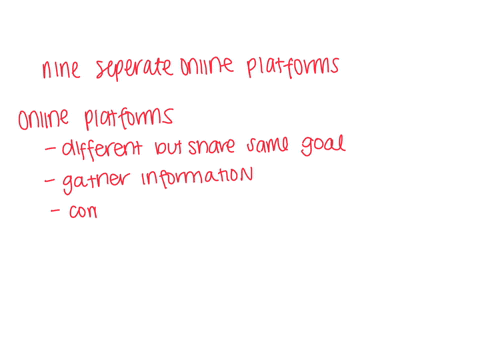 nine seperate online platforms
online platforms
- different but share same goal
- gather information
- con